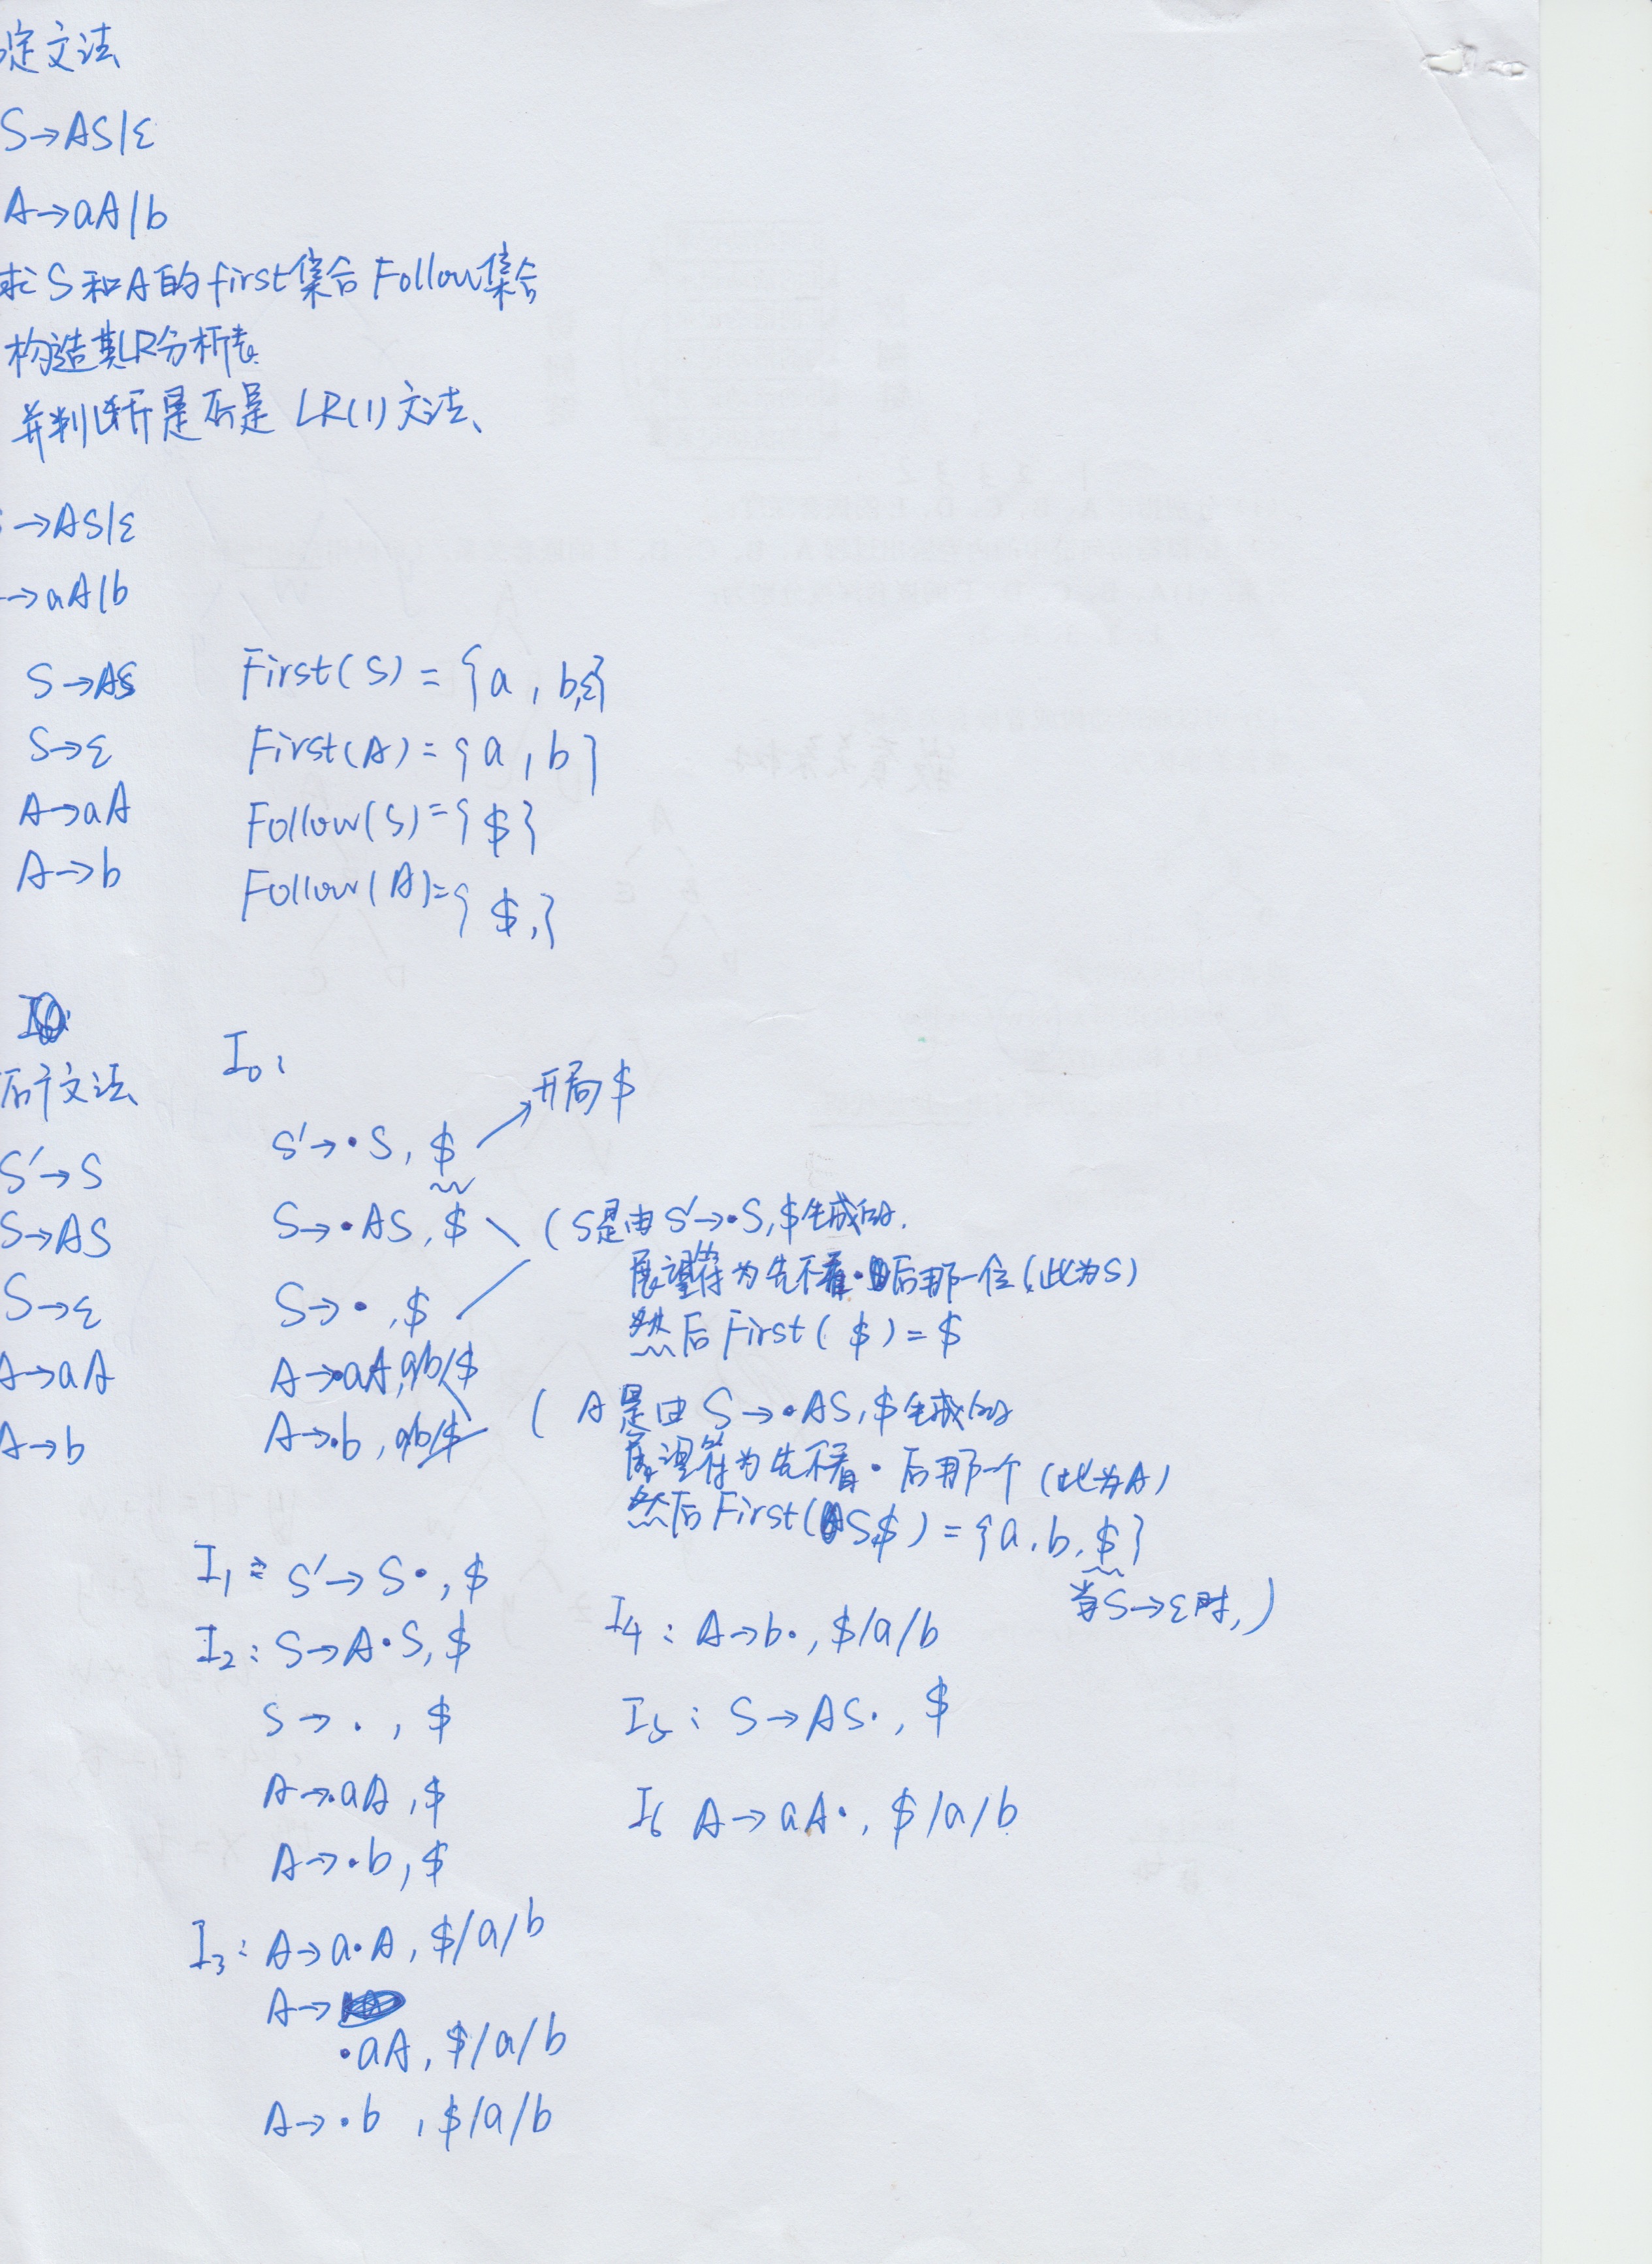 定文法
S→AS|ε
A→aA|b
求S和A的first集合 Follow集合
构造其LR分析表
并判断是否是 LR(1)文法、
→AS|ε
→aA|b
S→AS
S→ε
A→aA
A→b
First(S) = {a, b,ε}
First(A) = {a, b}
Follow(S) = {$}
Follow(A)={ $,}
文法
S'→S
S→AS
S→ε
A→aA
A→b
I0:
S'→·S, $ 开局$
S→·AS, $
S→·, $
(S是由S'→·S,$生成的.
展望符为先不看·后那一位(此为S)
然后First($)=$
A→·aA,a/b/$
A→·b, a/b/$
(A是由 S→·AS,$生成的
展望符为先不看·后那一个(此为A)
然后First(S$) = {a, b, $}
当S→ε时,)
I1: S'→S·, $
I2: S→A·S, $
S→·, $
A→·aA, $
A→·b, $
I3: A→a·A, $/a/b
A→
·aA, $/a/b
A→·b , $/a/b
I4: A→b·, $/a/b
I5: S→AS·, $
I6 A→aA·, $/a/b